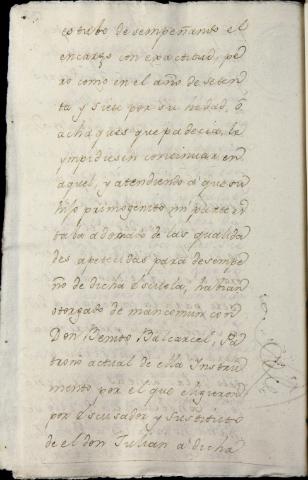 estubo desempeñando el
encargo con exactitud, pe
ro como en el año de seten
ta y siete por su hedad, ó
achaques que padecia, le
ympidiesen continuar en
aquel, y atendiendo á que su
hijo primogenito mi parte es
taba adornado de las qualida
des apetecidas para desempe
ño de dicha escuela, havian
otorgado de mancomun con
Don Benito Balcarcel, Pa
trono actual de ella Instru
mento por el que eligieron
por Escusador y Sustituto
de el don Julian a dicha